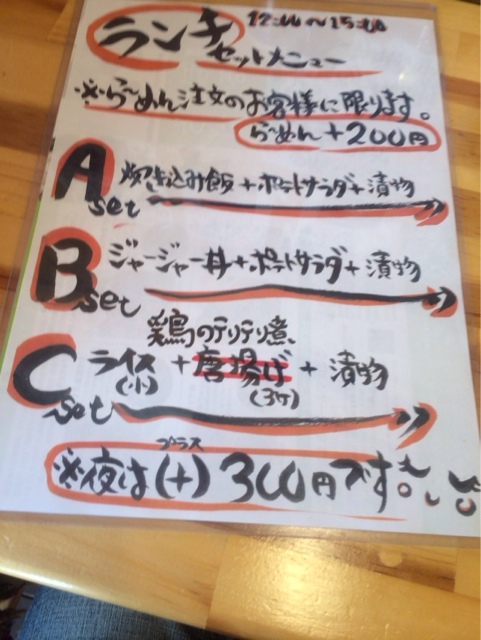 ランチ 12:00〜15:00
セットメニュー
※らーめん注文のお客様に限ります。
らーめん+200円
A set 炊き込み飯+ポテトサラダ+漬物
B set ジャージャー丼+ポテトサラダ+漬物
鶏のテリテリ煮
C set ライス(小)+唐揚げ(3ケ)+漬物
プラス
※夜は(+)300円です。